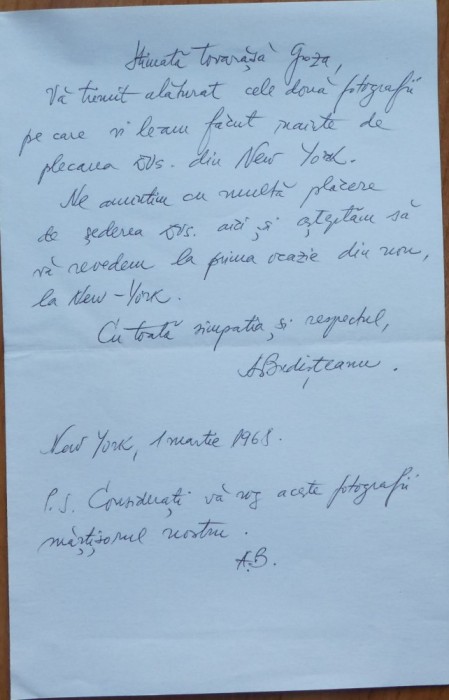 Stimată tovarășă Groza,
Vă trimit alăturat cele două fotografii
pe care vi le-am făcut înainte de
plecarea Dvs. din New York.
Ne amintim cu multă plăcere
de șederea Dvs. aici, și așteptăm să
vă revedem la prima ocazie din nou,
la New-York.
Cu toată simpatia și respectul,
New York, 1 martie 1968.
P.S. Considerați vă rog aceste fotografii
mărțișorul nostru.
A.B.